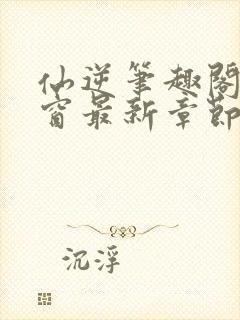 仙逆笔趣阁
窗最新章节
沉浮